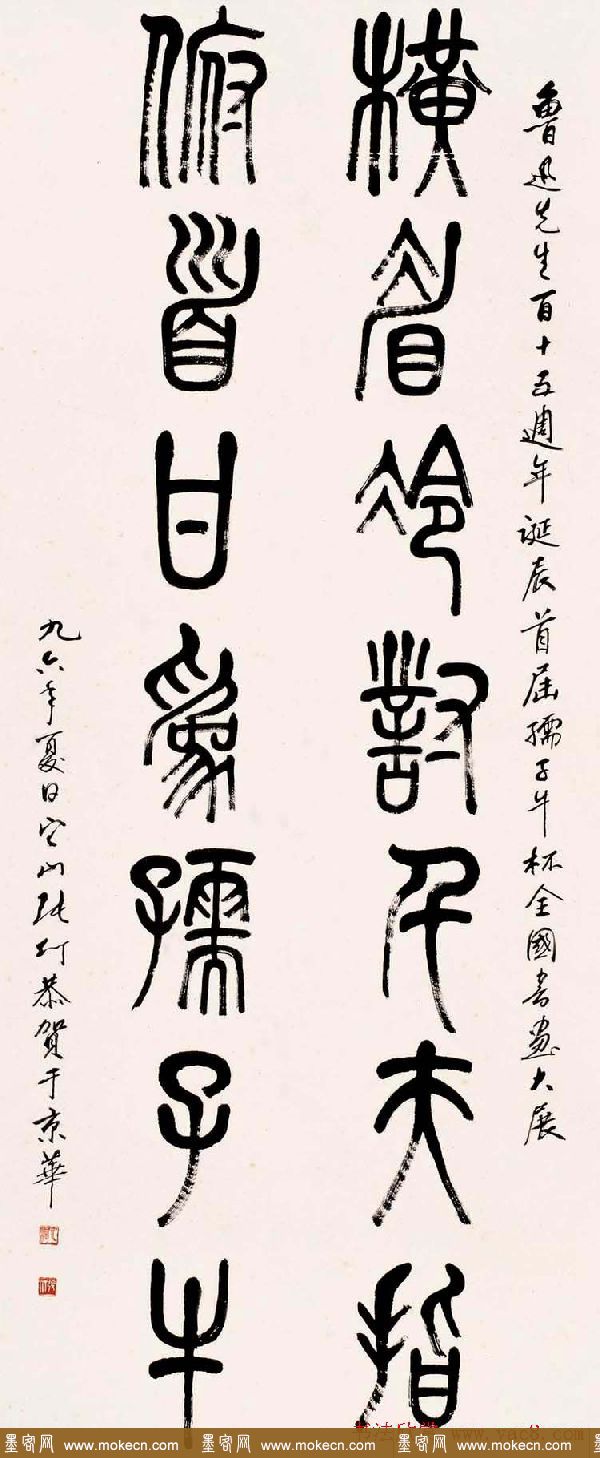 魯迅先生百十五週年誕辰首届孺子牛杯全國書畫大展
橫眉冷對千夫指
俯首甘為孺子牛
九六年夏日它山張仃恭賀于京華
书法欣赏 www.yac8.com
墨客网 www.mokecn.com 墨客网 www.mokecn.com 墨客网 www.mokecn.com